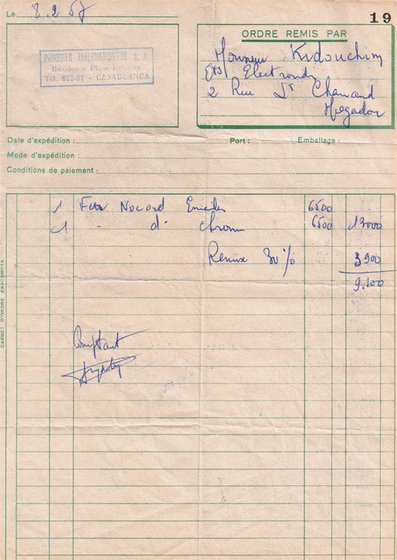 Le 8.2.57
19
ORDRE REMIS PAR
PRODUITS INTERNATIONAUX S.A.
Résidence Place Lyautey
Tél. 612-57 - CASABLANCA
Monsieur Kidouchim
Ets Electrondy
2 Rue St Chamand
Mogador
Date d'expédition :
Port :
Emballage :
Mode d'expédition :
Conditions de paiement :
1 Fer Nocord Emaillé 6500
1 - d° chromé 6500 13000
Remise 30% 3900
9.100
Comptant
CARNET D'ORDRE EXACOMPTA